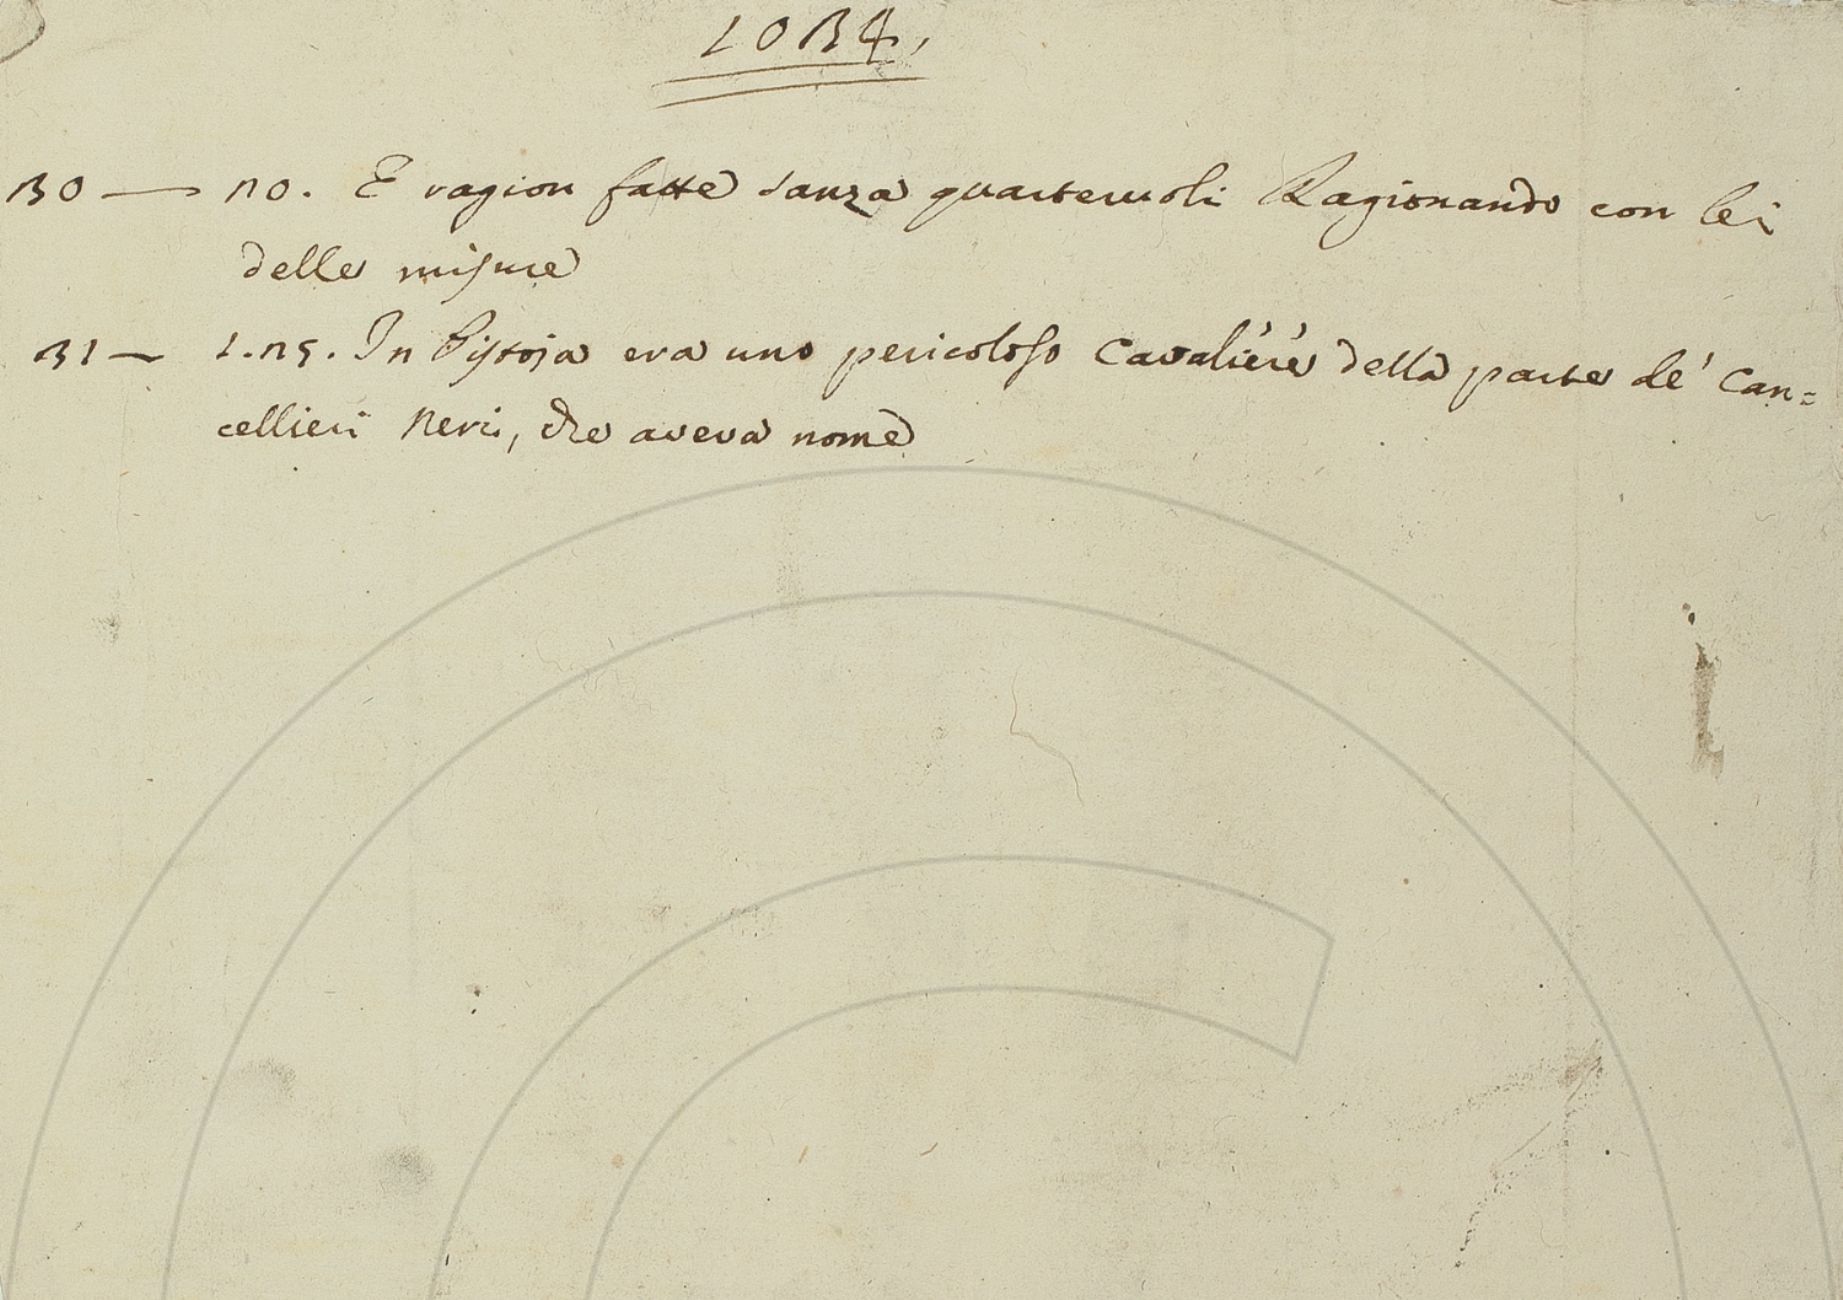 1034,
30 — 20. E ragion fatte sanza quarteruoli Ragionando con lei
delle misure
31 — 1.25. In Pistoja era uno pericoloso Cavaliere della parte de' Can=
cellieri Neri, che aveva nome